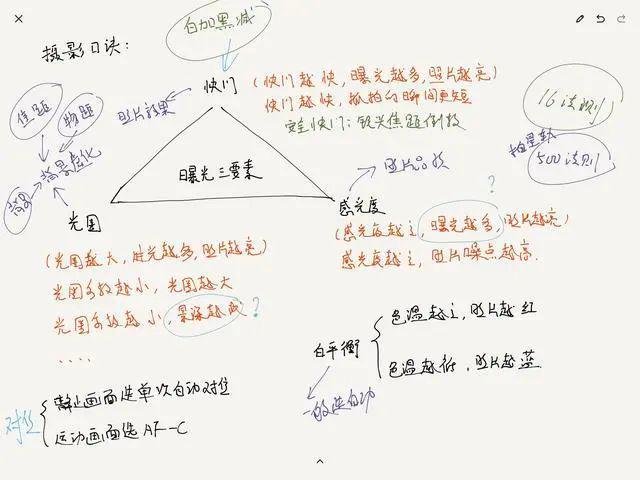 白加黑减
摄影口诀：
快门
(快门越快，曝光越多，照片越亮)
快门越快，抓拍的瞬间更短
安全快门：镜头焦距倒数
照片效果
焦距
物距
背景虚化
背景
16法则
拍星轨
500法则
曝光三要素
照片品质
?
光圈
感光度
(光圈越大，进光越多，照片越亮)
光圈系数越小，光圈越大
光圈系数越小，景深越浅?
....
(感光度越高，曝光越多，照片越亮)
感光度越高，照片噪点越高.
白平衡
色温越高，照片越红
色温越低，照片越蓝
一般选自动
对焦
静止画面选单次自动对焦
运动画面选 AF-C